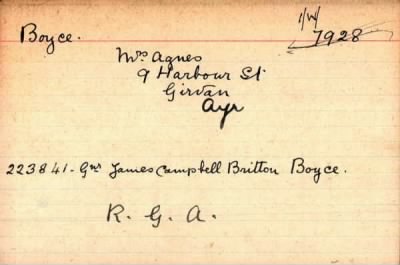 Boyce.
1/W/
7928
Mrs Agnes
9 Harbour St
Girvan
Ayr
223841 - Gnr James Campbell Britton Boyce.
R. G. A.